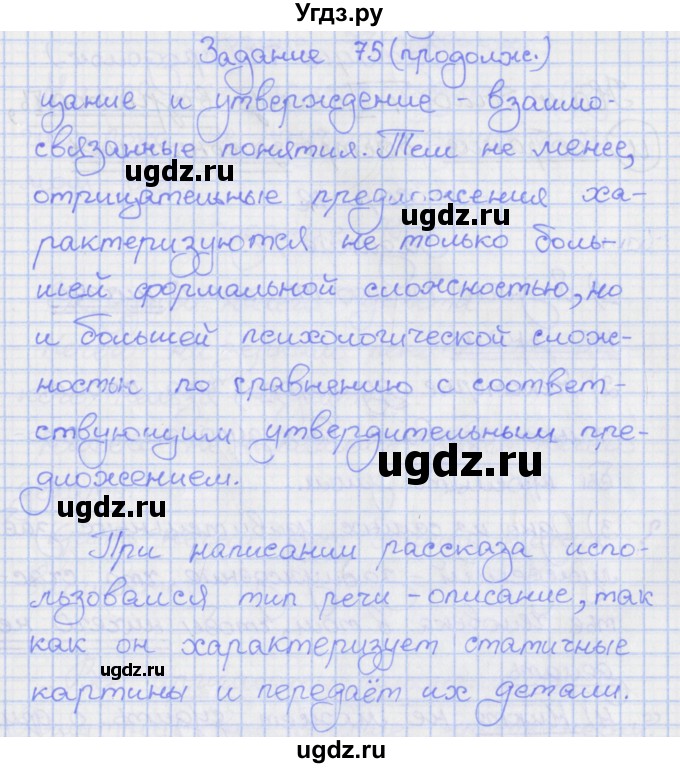 Угдз.ру
Задание 75 (продолж.)
цание и утверждение - взаимо-
связанные понятия. Тем не менее,
ugdz.ru
отрицательные предложения ха-
ugdz.ru
рактеризуются не только боль-
ugdz.ru
шей формальной сложностью, но
и большей психологической слож-
ностью по сравнению с соответ-
ствующим утвердительным пре-
ugdz.ru
дложением.
ugdz.ru
При написании рассказа испо-
льзовался тип речи - описание, так
ugdz.ru
как он характеризует статичные
ugdz.ru
картины и передаёт их детали.
ugdz.ru